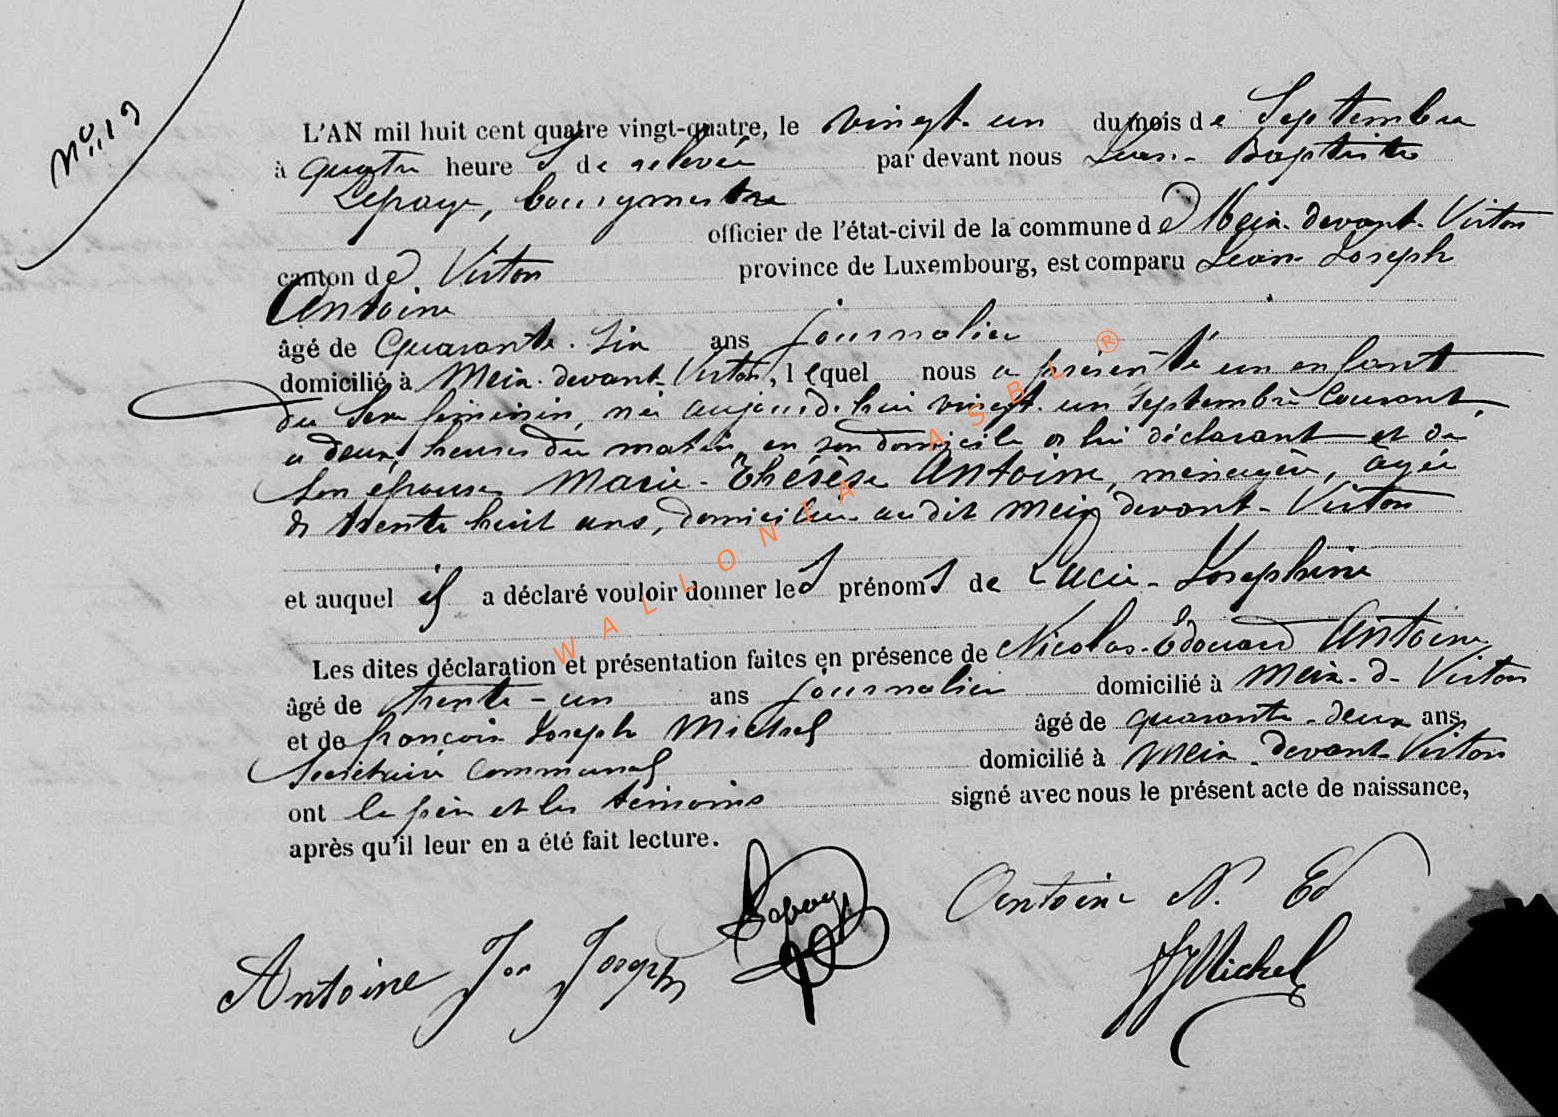 N° 19
L'AN mil huit cent quatre vingt-quatre, le vingt-un du mois de Septembre
à quatre heures de relevée par devant nous Jean-Baptiste
Lepage, bourgmestre
officier de l'état-civil de la commune de Meix-devant-Virton
canton de Virton province de Luxembourg, est comparu Jean-Joseph
Antoine
âgé de Quarante-six ans journalier
domicilié à Meix-devant-Virton, lequel nous a présenté un enfant
du sexe féminin, né aujourd'hui vingt-un Septembre courant,
à deux heures du matin, en son domicile de lui déclarant et de
son épouse Marie-Thérèse Antoine, ménagère, âgée
de trente huit ans, domiciliée audit Meix devant-Virton
et auquel il a déclaré vouloir donner les prénoms de Lucie-Joséphine
Les dites déclaration et présentation faites en présence de Nicolas-Edouard Antoine
âgé de trente-un ans journalier domicilié à Meix-d-Virton
et de françois Joseph Michel âgé de quarante-deux ans
Secrétaire communal domicilié à Meix-devant-Virton
ont le père et les témoins signé avec nous le présent acte de naissance,
après qu'il leur en a été fait lecture.
Lepage
Antoine N. Ed
Antoine Jn Joseph
FJ Michel
WALLONIA ASBL ®